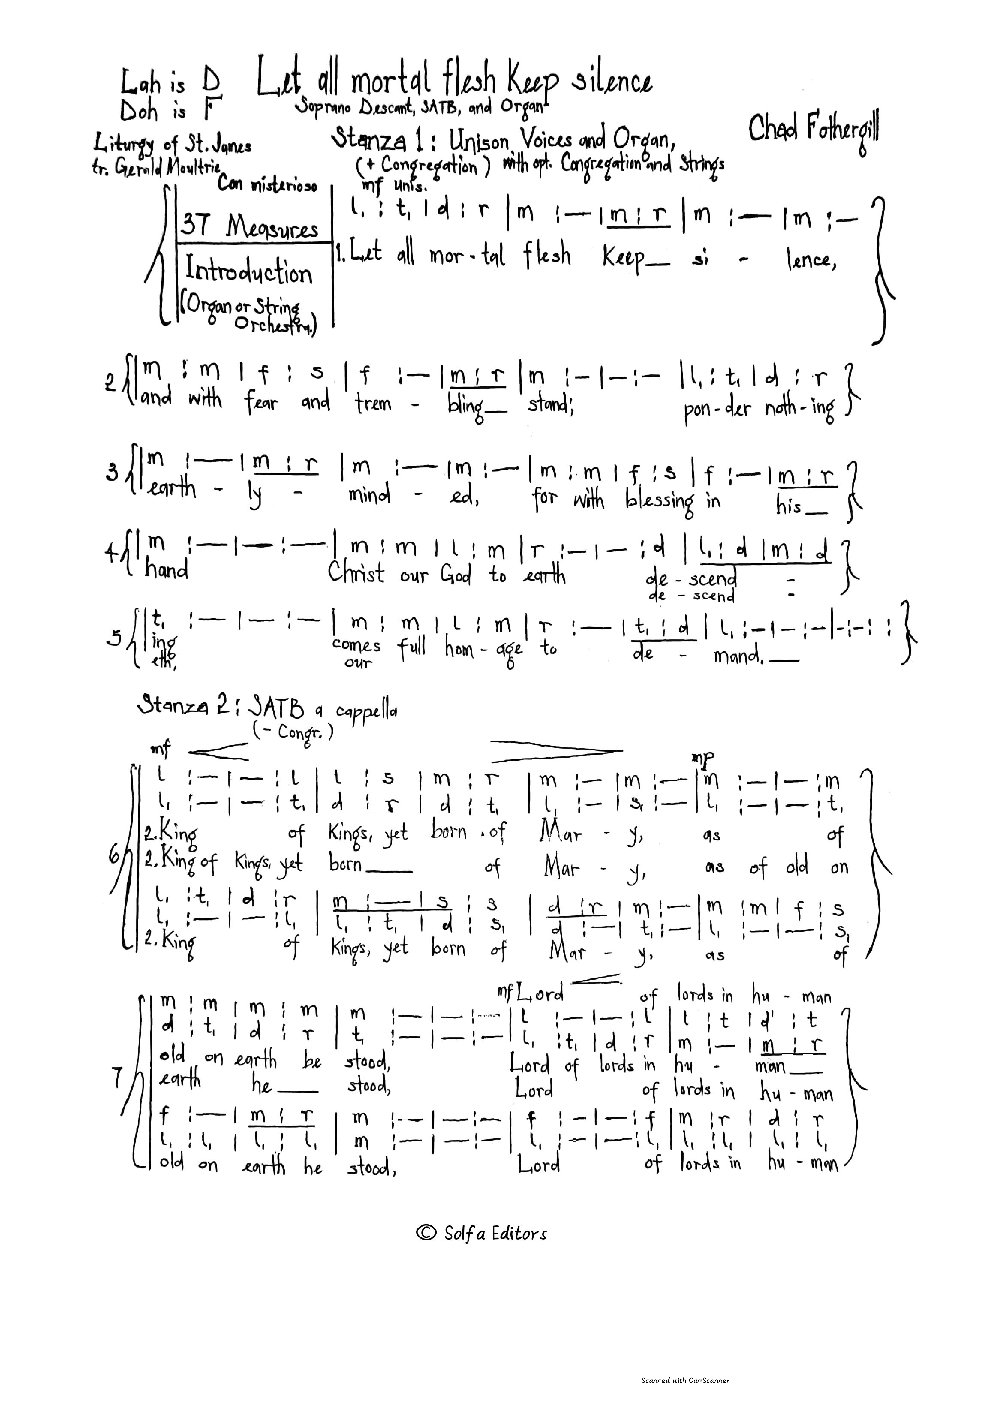 Lah is D
Doh is F
Let all mortal flesh Keep silence
Soprano Descant, SATB, and Organ
Chad Fothergill
Liturgy of St. James
tr. Gerald Moultrie
Stanza 1: Unison Voices and Organ,
(+ Congregation) with opt. Congregation and Strings
Con misterioso
mf unis.
37 Measures
Introduction
(Organ or String Orchestra)
l, : t, | d : r | m : — | m : r | m : — | m : —
1. Let all mor - tal flesh Keep__ si - lence,
2 m : m | f : s | f : — | m : r | m : — | — : — | l, : t, | d : r
and with fear and trem - bling__ stand; pon - der noth - ing
3 m : — | m : r | m : — | m : — | m : m | f : s | f : — | m : r
earth - ly - mind - ed, for with blessing in his__
4 m : — | — : — | m : m | l : m | r : — | — : d | l, : d | m : d
hand Christ our God to earth de - scend -
de - scend -
5 t, : — | — : — | m : m | l : m | r : — | t, : d | l, : — | — : — | — : — : :
ing comes full hom - age to de - mand.__
eth, our
Stanza 2: SATB a cappella
(- Congr.)
mf mp
l : — | — : l | l : s | m : r | m : — | m : — | m : — | — : m
l, : — | — : t, | d : r | d : t, | l, : — | s, : — | l, : — | — : t,
2. King of Kings, yet born of Mar - y, as of
6 2. King of Kings, yet born____ of Mar - y, as of old on
l, : t, | d : r | m : — | s : s | d : r | m : — | m : m | f : s
l, : — | — : l, | l, : t, | d : s, | d : — | t, : — | l, : — | — : s,
2. King of Kings, yet born of Mar - y, as of
mf Lord of lords in hu - man
m : m | m : m | m : — | — : — | l : — | — : l | l : t | d' : t
d : t, | d : r | t, : — | — : — | l, : t, | d : r | m : — | m : r
old on earth be stood, Lord of lords in hu - man__
7 earth he___ stood, Lord of lords in hu - man
f : — | m : r | m : — | — : — | f : — | — : f | m : r | d : r
l, : l, | l, : l, | m : — | — : — | l, : — | — : l, | l, : l, | l, : l,
old on earth he stood, Lord of lords in hu - man
© Solfa Editors
Scanned with CamScanner